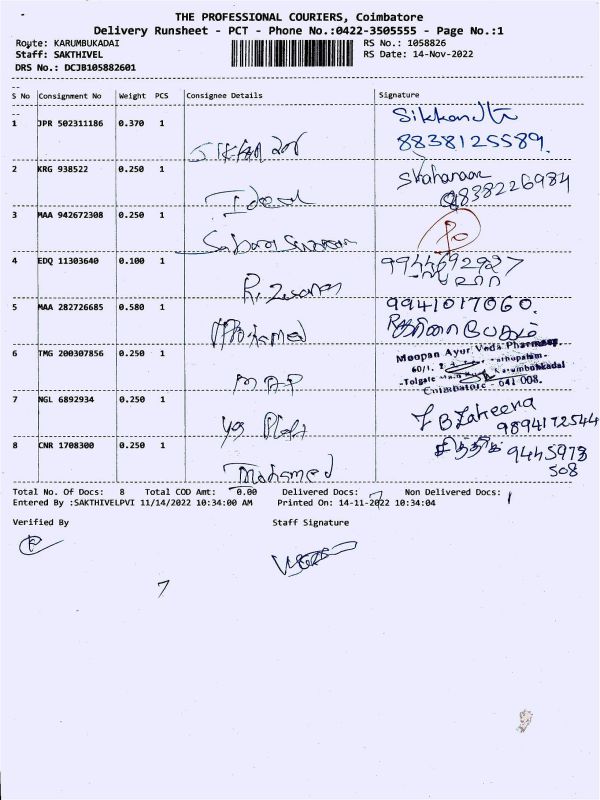 THE PROFESSIONAL COURIERS, Coimbatore
Delivery Runsheet - PCT - Phone No.:0422-3505555 - Page No.:1
Route: KARUMBUKADAI RS No.: 1058826
Staff: SAKTHIVEL RS Date: 14-Nov-2022
DRS No.: DCJB105882601
S No Consignment No Weight PCS Consignee Details Signature
1 JPR 502311186 0.370 1
8838125589.
2 KRG 938522 0.250 1 Ideal
8838226984
3 MAA 942672308 0.250 1
4 EDQ 11303640 0.100 1 9944692927
5 MAA 282726685 0.580 1 Mohamed 9941017060.
6 TMG 200307856 0.250 1 MAP
Moopan Ayur Veda Pharmacy,
Karumbukkadai
Coimbatore - 641 008.
7 NGL 6892934 0.250 1
9894172544
8 CNR 1708300 0.250 1 Mohamed சித்திக் 9445978
508
Total No. Of Docs: 8 Total COD Amt: 0.00 Delivered Docs: 7 Non Delivered Docs: 1
Entered By :SAKTHIVELPVI 11/14/2022 10:34:00 AM Printed On: 14-11-2022 10:34:04
Verified By Staff Signature
7